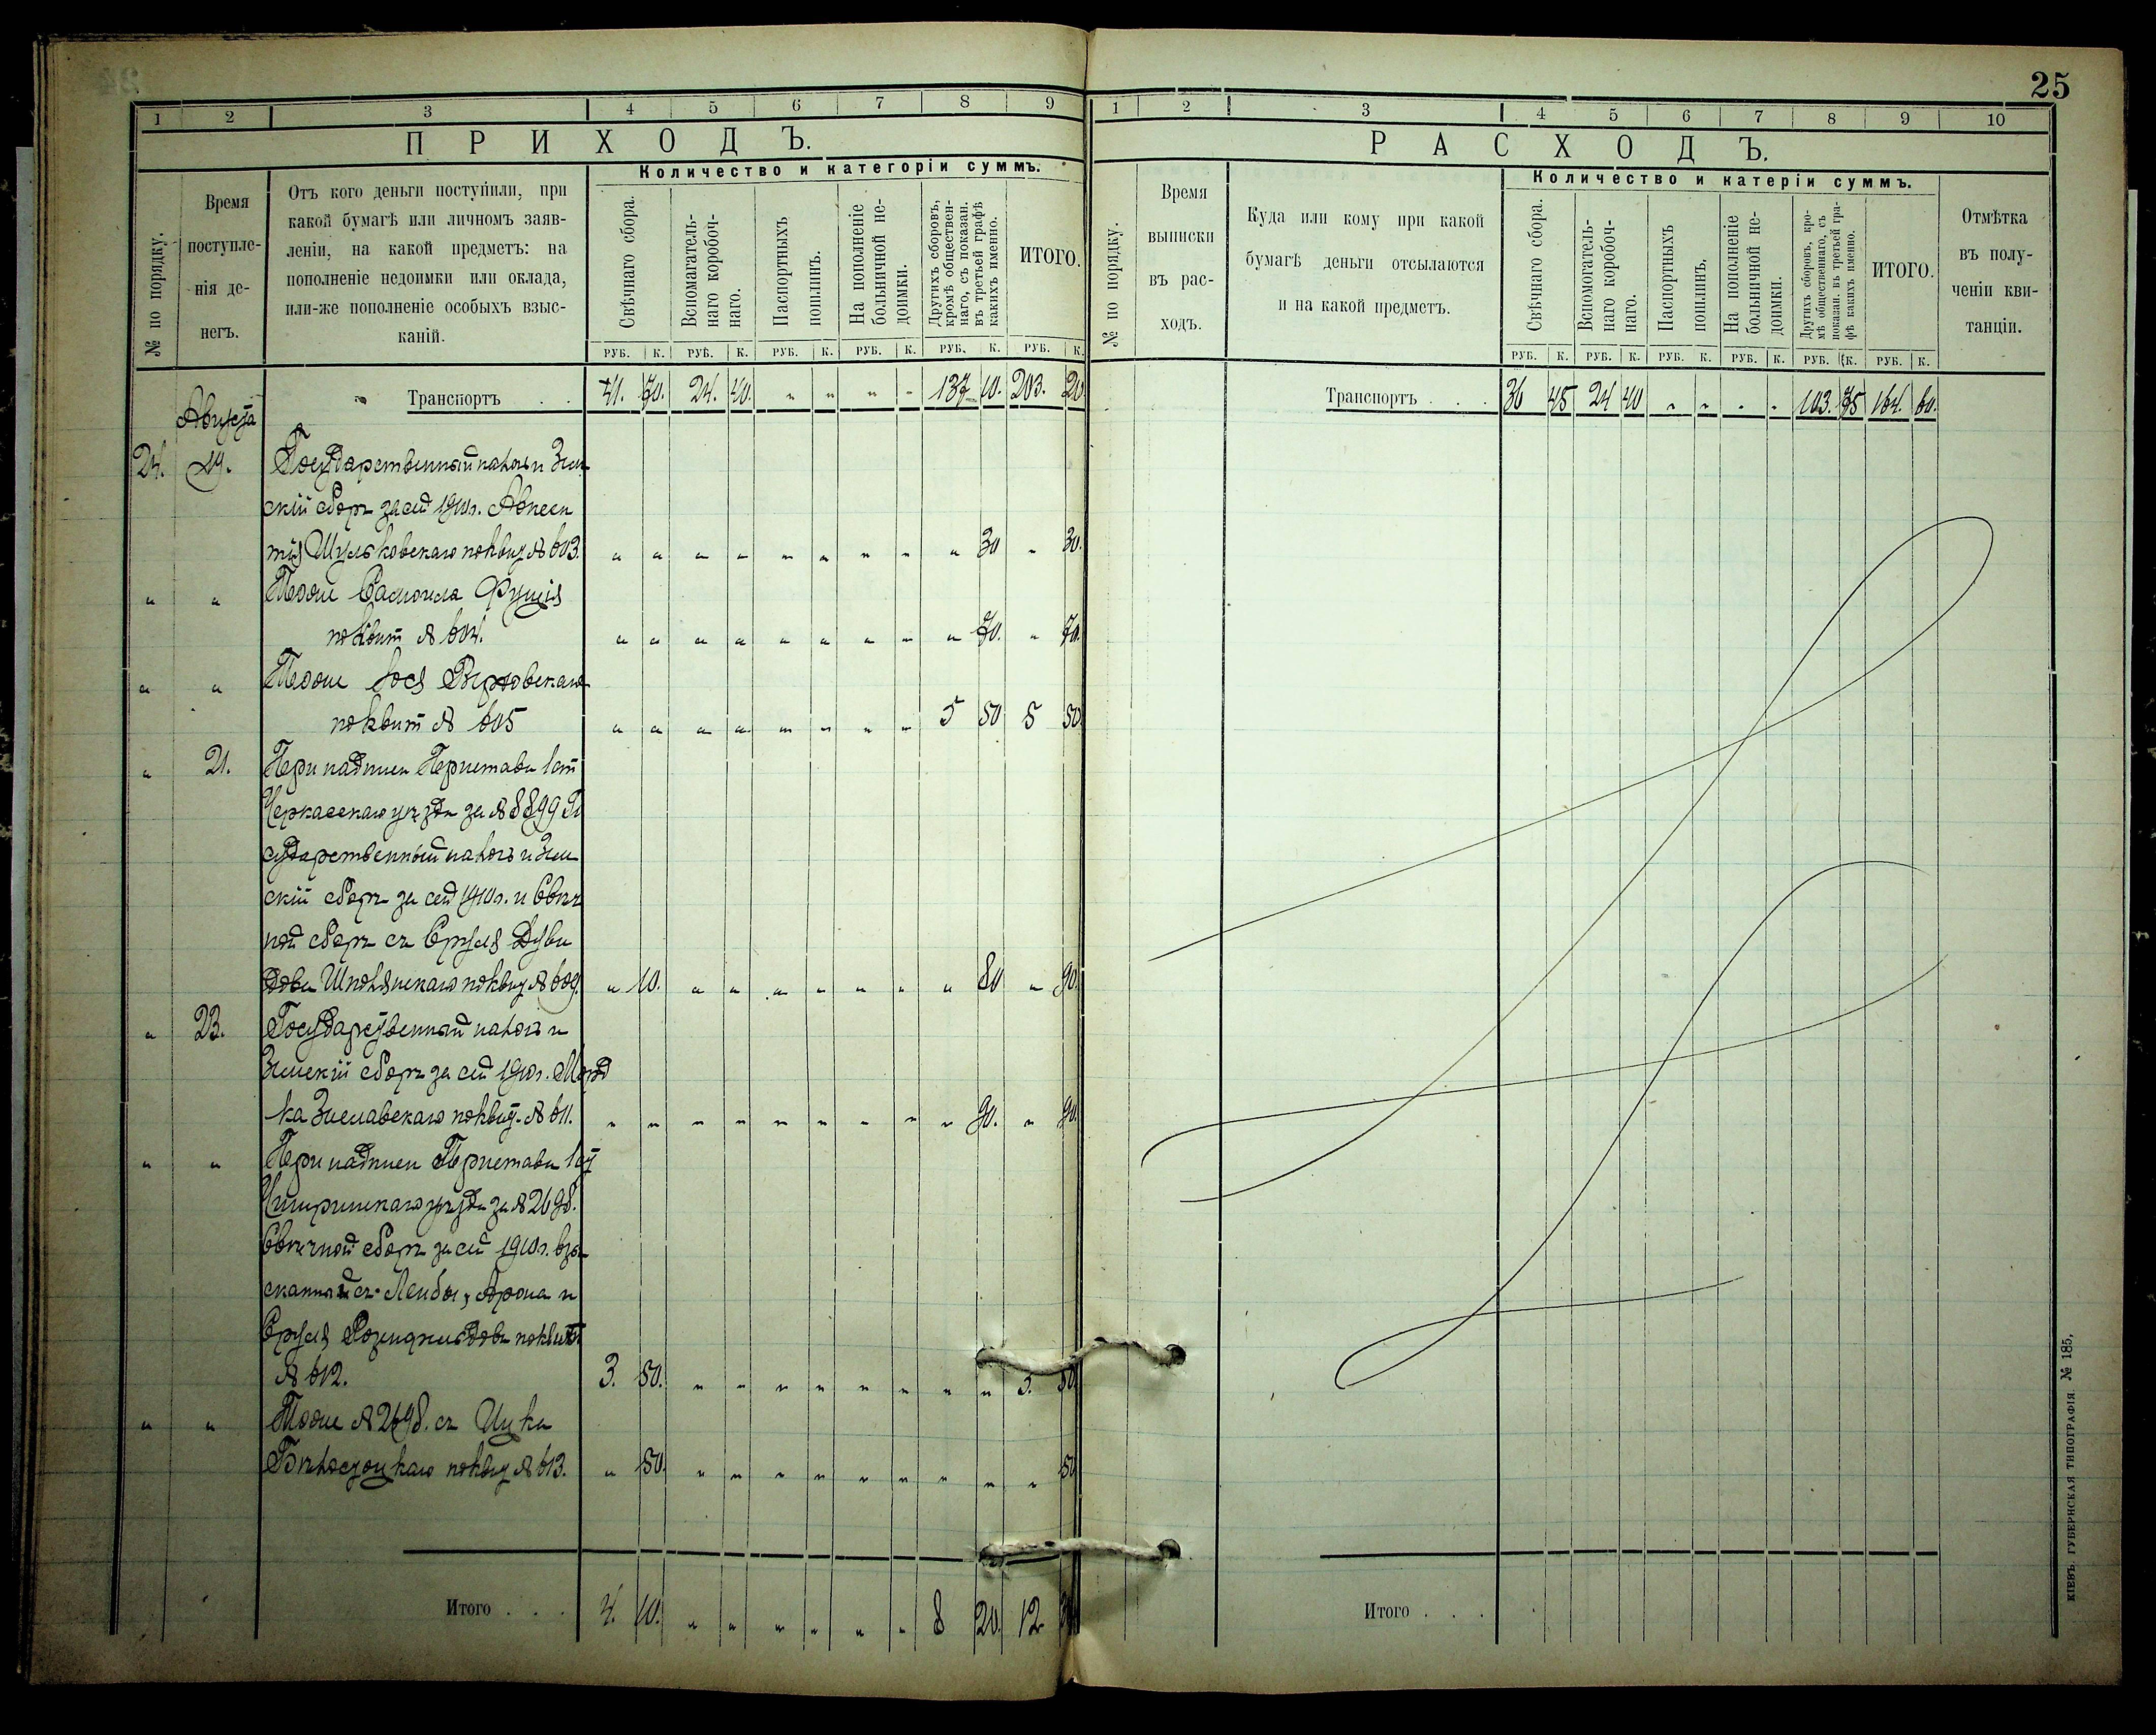 25
1 2 3 4 5 6 7 8 9
ПРИХОДЪ.
№ по порядку.
Время
поступле-
нія де-
негъ.
Отъ кого деньги поступили, при
какой бумагѣ или личномъ заяв-
леніи, на какой предметъ: на
пополненіе недоимки или оклада,
или-же пополненіе особыхъ взыс-
каній.
Количество и категоріи суммъ.
Свѣчнаго сбора.
Вспомагатель-
наго коробоч-
наго.
Паспортныхъ
пошлинъ.
На пополненіе
больничной не-
доимки.
Другихъ сборовъ,
кромѣ обществен-
наго, съ показан.
въ третьей графѣ
какихъ именно.
ИТОГО.
РУБ. К. РУБ. К. РУБ. К. РУБ. К. РУБ. К. РУБ. К.
Транспортъ . . 41. 70. 24. 40. " " " " 137 10. 203. 20
Августа
24. 19. Государственный налогъ и Зем
скій сборъ за сей 1910 г.
поквит № 603. " " " " " " " " " 30 " 30.
" " Тоже
поквит № 604. " " " " " " " " " 70. " 70.
" " Тоже
поквит № 605 " " " " " " " " 5 50 5 50
" 21. При надписи Пристава 1 ст
Черкасскаго уѣзда за № 8899 Го
сударственный налогъ и Зем
скій сборъ за сей 1910 г. и Свѣч
ной сборъ съ Сруля Дуви
дова поквит № 609. " 10. " " " " " " " 80 " 90.
" 23. Государственный налогъ и
Земскій сборъ за сей 1910 г. Морд
ка поквит. № 611. " " " " " " " " " 90. " 90.
" " При надписи Пристава 1 ст
Чигиринскаго уѣзда за № 2698.
Свѣчной сборъ за сей 1910 г. взы
сканный съ Лейбы, Арона и
Сруля поквит
№ 612. 3. 50. " " " " " " " " 3. 50
" " Тоже № 2698. съ Ицка
поквит № 613. " 50. " " " " " " " " " 50
Итого . . . 4. 10. " " " " " " 8 20. 12 30
1 2 3 4 5 6 7 8 9 10
РАСХОДЪ.
№ по порядку.
Время
выписки
въ рас-
ходъ.
Куда или кому при какой
бумагѣ деньги отсылаются
и на какой предметъ.
Количество и катерій суммъ.
Свѣчнаго сбора.
Вспомогатель-
наго коробоч-
наго.
Паспортныхъ
пошлинъ.
На пополненіе
больничной не-
доимки.
Другихъ сборовъ, кро-
мѣ общественнаго, съ
показан. въ третьей гра-
фѣ какихъ именно.
ИТОГО.
Отмѣтка
въ полу-
ченіи кви-
танціи.
РУБ. К. РУБ. К. РУБ. К. РУБ. К. РУБ. К. РУБ. К.
Транспортъ . . . 36 45 24 40 " " " " 103. 75 164. 60.
Итого . . .
КІЕВЪ, ГУБЕРНСКАЯ ТИПОГРАФІЯ № 185,